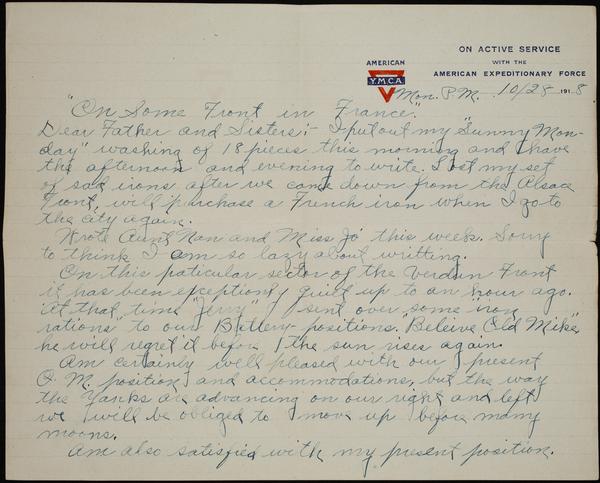 ON ACTIVE SERVICE
WITH THE
AMERICAN EXPEDITIONARY FORCE
AMERICAN
Y.M.C.A.
Mon. P.M. 10/28 1918
"On Some Front in France."
Dear Father and Sisters:- I put out my "Sunny Mon-
day" washing of 18 pieces this morning and have
the afternoon and evening to write. Lost my set
of sad irons after we came down from the Alsace
Front, will purchase a French iron when I go to
the city again.
Wrote Aunt Nan and Miss Jo this week. Sorry
to think I am so lazy about writting.
On this paticular sector of the Verdun Front
it has been exceptionly quiet up to an hour ago.
At that time "Jerry" sent over some iron
rations to our Battery positions. Beleive Old Mike
he will regret it before the sun rises again.
Am certainly well pleased with our present
P.M. position and accommodations, but the way
the Yanks are advancing on our right and left
we will be obliged to move up before many
moons.
Am also satisfied with my present position.